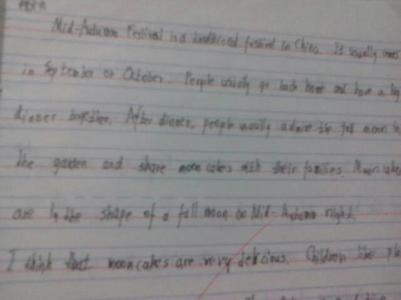 Mid-Autumn Festival is a traditional festival in China. It usually comes
in September or October. People usually go back home and have a big
dinner together. After dinner, people usually admire the full moon in
the garden and share mooncakes with their families. Mooncakes
are in the shape of a full moon on Mid-Autumn night.
I think that mooncakes are very delicious. Children like